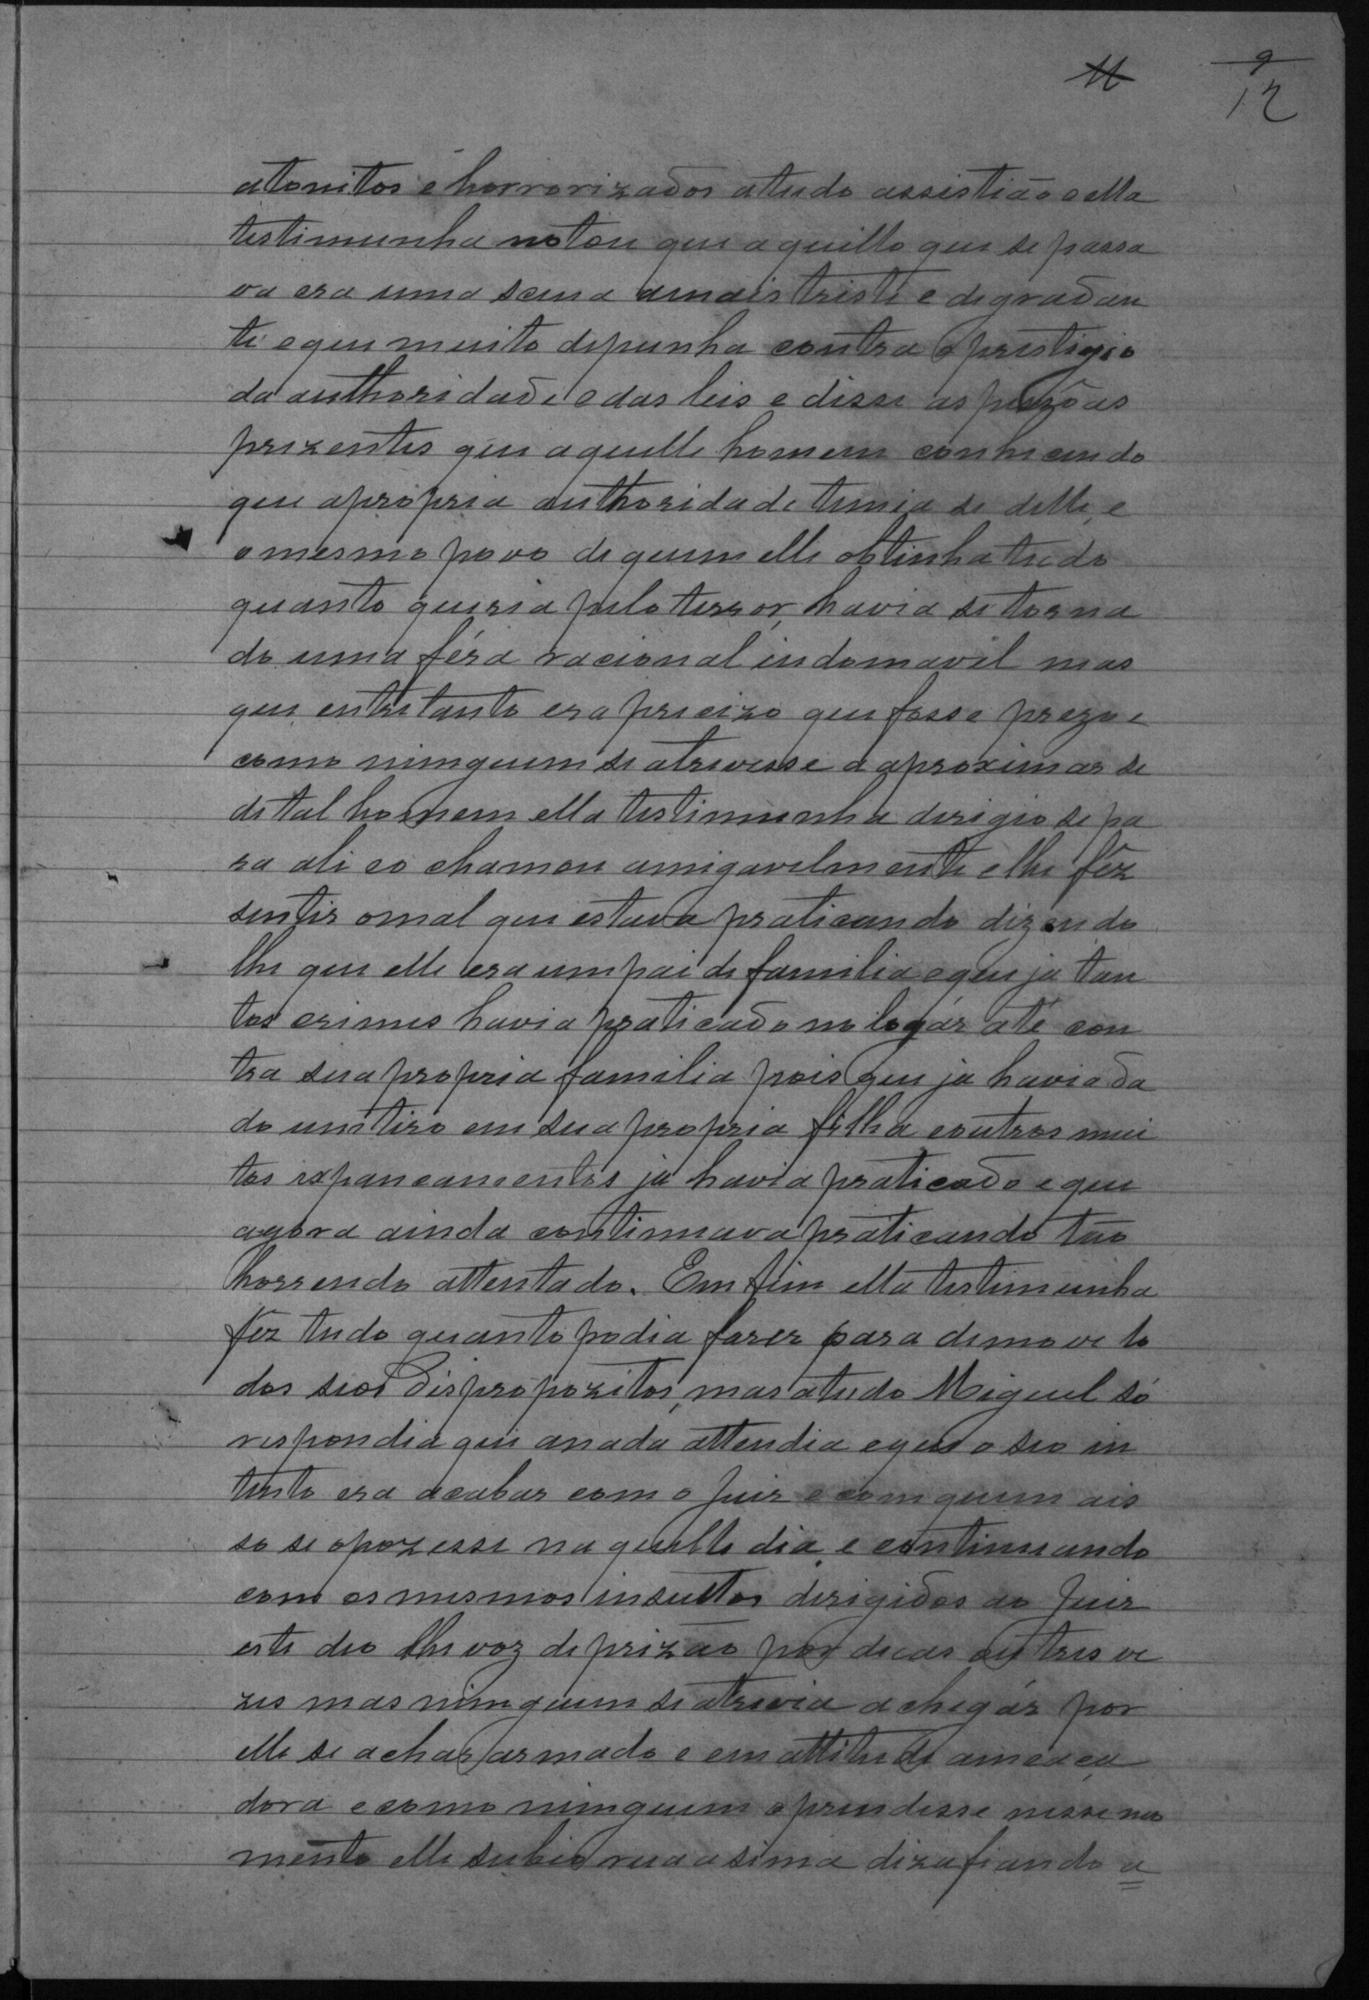 11
9
12
atonitos e horrorizados atudo assistião e ella
testimunha notou que aquillo que se passa
va era uma scena amais triste e degradan
te e que muito depunha contra o prestigio
da authoridade e das leis e disse as pessôas
prezentes que aquelle homem conhecendo
que apropria authoridade temia se delle, e
o mesmo povo de quem elle obtinha tudo
quanto queria pelo terror, havia se torna
do uma féra racional indomavel mas
que entretanto era precizo que fosse prezo e
como nimguem se atrevesse a aproximar se
de tal homem ella testimunha dirigio se pa
ra ali e o chamou amigavelmente e lhe fêz
sentir omal que estava praticando dizendo
lhe que elle era um pai de familia e que ja tan
tos crimes havia praticado no logár até con
tra sua propria familia pois que ja havia da
do um tiro em sua propria filha e outros mui
tos espancamentos ja havia praticado e que
agora ainda continuava praticando tão
horrendo attentado. Em fim ella testimunha
fêz tudo quanto podia fazer para demove lo
dos seos dispropozitos, mas atudo Miguel só
respondia que anada attendia e que o seo in
tento era acabar com o Juiz e com quem ais
so se opozesse naquelle dia, e continuando
com os mesmos insultos dirigidos ao Juiz
este deo lhe voz de prizão por duas ou tres ve
zes mas nimguem se atrevia a chegár por
elle se achar armado e em attitude ameaça
dora e como nimguem o prendesse nesse mo
mento elle subio rua asima dizafiando a